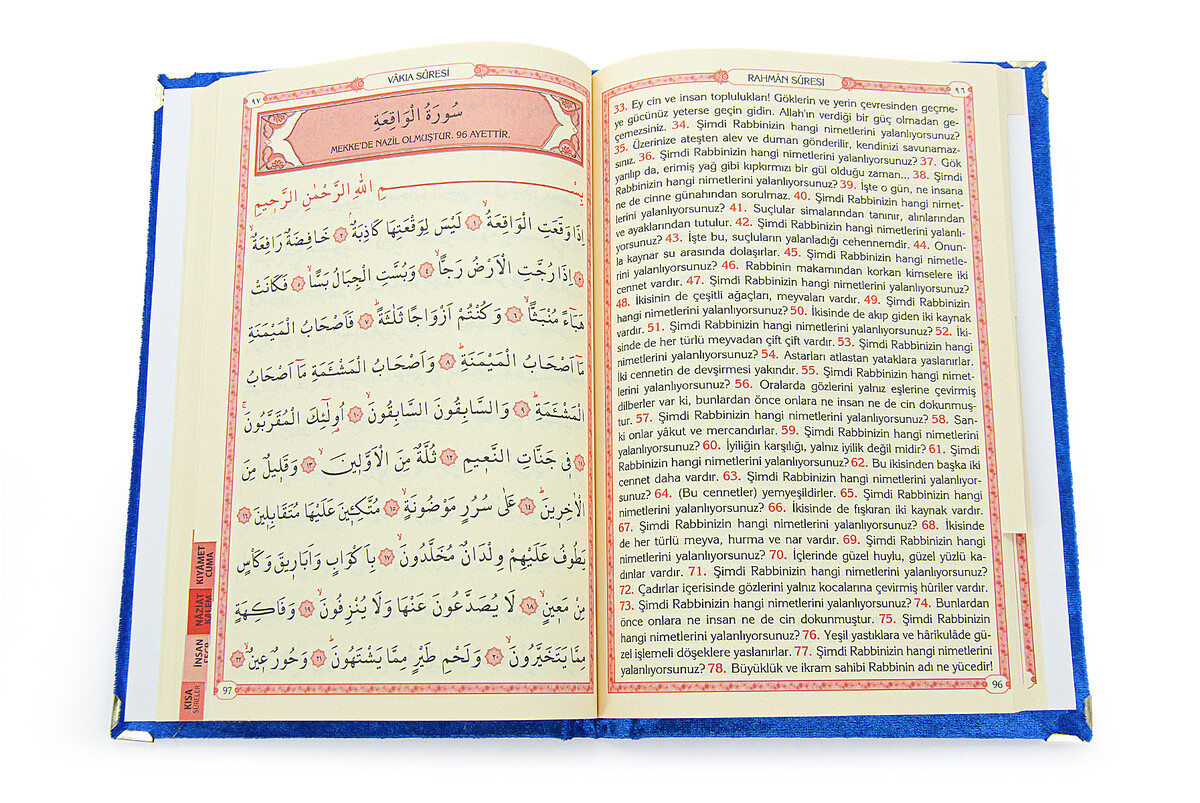 RAHMÂN SÛRESİ
٩٦
33. Ey cin ve insan toplulukları! Göklerin ve yerin çevresinden geçme-
ye gücünüz yeterse geçin gidin. Allah'ın verdiği bir güç olmadan ge-
çemezsiniz. 34. Şimdi Rabbinizin hangi nimetlerini yalanlıyorsunuz?
35. Üzerinize ateşten alev ve duman gönderilir, kendinizi savunamaz-
sınız. 36. Şimdi Rabbinizin hangi nimetlerini yalanlıyorsunuz? 37. Gök
yarılıp da, erimiş yağ gibi kıpkırmızı bir gül olduğu zaman... 38. Şimdi
Rabbinizin hangi nimetlerini yalanlıyorsunuz? 39. İşte o gün, ne insana
ne de cinne günahından sorulmaz. 40. Şimdi Rabbinizin hangi nimet-
lerini yalanlıyorsunuz? 41. Suçlular simalarından tanınır, alınlarından
ve ayaklarından tutulur. 42. Şimdi Rabbinizin hangi nimetlerini yalanlı-
yorsunuz? 43. İşte bu, suçluların yalanladığı cehennemdir. 44. Onun-
la kaynar su arasında dolaşırlar. 45. Şimdi Rabbinizin hangi nimetle-
rini yalanlıyorsunuz? 46. Rabbinin makamından korkan kimselere iki
cennet vardır. 47. Şimdi Rabbinizin hangi nimetlerini yalanlıyorsunuz?
48. İkisinin de çeşitli ağaçları, meyvaları vardır. 49. Şimdi Rabbinizin
hangi nimetlerini yalanlıyorsunuz? 50. İkisinde de akıp giden iki kaynak
vardır. 51. Şimdi Rabbinizin hangi nimetlerini yalanlıyorsunuz? 52. İki-
sinde de her türlü meyvadan çift çift vardır. 53. Şimdi Rabbinizin hangi
nimetlerini yalanlıyorsunuz? 54. Astarları atlastan yataklara yaslanırlar.
İki cennetin de devşirmesi yakındır. 55. Şimdi Rabbinizin hangi nimet-
lerini yalanlıyorsunuz? 56. Oralarda gözlerini yalnız eşlerine çevirmiş
dilberler var ki, bunlardan önce onlara ne insan ne de cin dokunmuş-
tur. 57. Şimdi Rabbinizin hangi nimetlerini yalanlıyorsunuz? 58. San-
ki onlar yâkut ve mercandırlar. 59. Şimdi Rabbinizin hangi nimetlerini
yalanlıyorsunuz? 60. İyiliğin karşılığı, yalnız iyilik değil midir? 61. Şimdi
Rabbinizin hangi nimetlerini yalanlıyorsunuz? 62. Bu ikisinden başka iki
cennet daha vardır. 63. Şimdi Rabbinizin hangi nimetlerini yalanlıyor-
sunuz? 64. (Bu cennetler) yemyeşildirler. 65. Şimdi Rabbinizin hangi
nimetlerini yalanlıyorsunuz? 66. İkisinde de fışkıran iki kaynak vardır.
67. Şimdi Rabbinizin hangi nimetlerini yalanlıyorsunuz? 68. İkisinde
de her türlü meyva, hurma ve nar vardır. 69. Şimdi Rabbinizin hangi
nimetlerini yalanlıyorsunuz? 70. İçlerinde güzel huylu, güzel yüzlü ka-
dınlar vardır. 71. Şimdi Rabbinizin hangi nimetlerini yalanlıyorsunuz?
72. Çadırlar içerisinde gözlerini yalnız kocalarına çevirmiş hûriler vardır.
73. Şimdi Rabbinizin hangi nimetlerini yalanlıyorsunuz? 74. Bunlardan
önce onlara ne insan ne de cin dokunmuştur. 75. Şimdi Rabbinizin
hangi nimetlerini yalanlıyorsunuz? 76. Yeşil yastıklara ve hârikulâde gü-
zel işlemeli döşeklere yaslanırlar. 77. Şimdi Rabbinizin hangi nimetlerini
yalanlıyorsunuz? 78. Büyüklük ve ikram sahibi Rabbinin adı ne yücedir!
96
VÂKIA SÛRESİ
٩٧
سُورَةُ الْوَاقِعَةِ
MEKKE'DE NAZİL OLMUŞTUR. 96 AYETTİR.
بِسْمِ اللّٰهِ الرَّحْمٰنِ الرَّحِيمِ
اِذَا وَقَعَتِ الْوَاقِعَةُۙ ١ لَيْسَ لِوَقْعَتِهَا كَاذِبَةٌۢ ٢ خَافِضَةٌ رَافِعَةٌۙ
٣ اِذَا رُجَّتِ الْاَرْضُ رَجًّاۙ ٤ وَبُسَّتِ الْجِبَالُ بَسًّاۙ ٥ فَكَانَتْ
هَبَٓاءً مُنْبَثًّاۙ ٦ وَكُنْتُمْ اَزْوَاجًا ثَلٰثَةًؕ ٧ فَاَصْحَابُ الْمَيْمَنَةِ
مَٓا اَصْحَابُ الْمَيْمَنَةِؕ ٨ وَاَصْحَابُ الْمَشْـَٔمَةِ مَٓا اَصْحَابُ
الْمَشْـَٔمَةِؕ ٩ وَالسَّابِقُونَ السَّابِقُونَۙ ١٠ اُو۬لٰٓئِكَ الْمُقَرَّبُونَۚ
١١ فِي جَنَّاتِ النَّعِيمِ ١٢ ثُلَّةٌ مِنَ الْاَوَّلِينَۙ ١٣ وَقَلِيلٌ مِنَ
الْاٰخِرِينَؕ ١٤ عَلٰى سُرُرٍ مَوْضُونَةٍۙ ١٥ مُتَّكِـِٔينَ عَلَيْهَا مُتَقَابِلِينَ ١٦
يَطُوفُ عَلَيْهِمْ وِلْدَانٌ مُخَلَّدُونَۙ ١٧ بِاَكْوَابٍ وَاَبَارِيقَ وَكَأْسٍ
مِنْ مَعِينٍۙ ١٨ لَا يُصَدَّعُونَ عَنْهَا وَلَا يُنْزِفُونَۙ ١٩ وَفَاكِهَةٍ
مِمَّا يَتَخَيَّرُونَۙ ٢٠ وَلَحْمِ طَيْرٍ مِمَّا يَشْتَهُونَؕ ٢١ وَحُورٌ عِينٌۙ ٢٢
97
KIYÂMET
CUMA
NÂZİAT
KALEM
İNSAN
KISA
SÛRELER